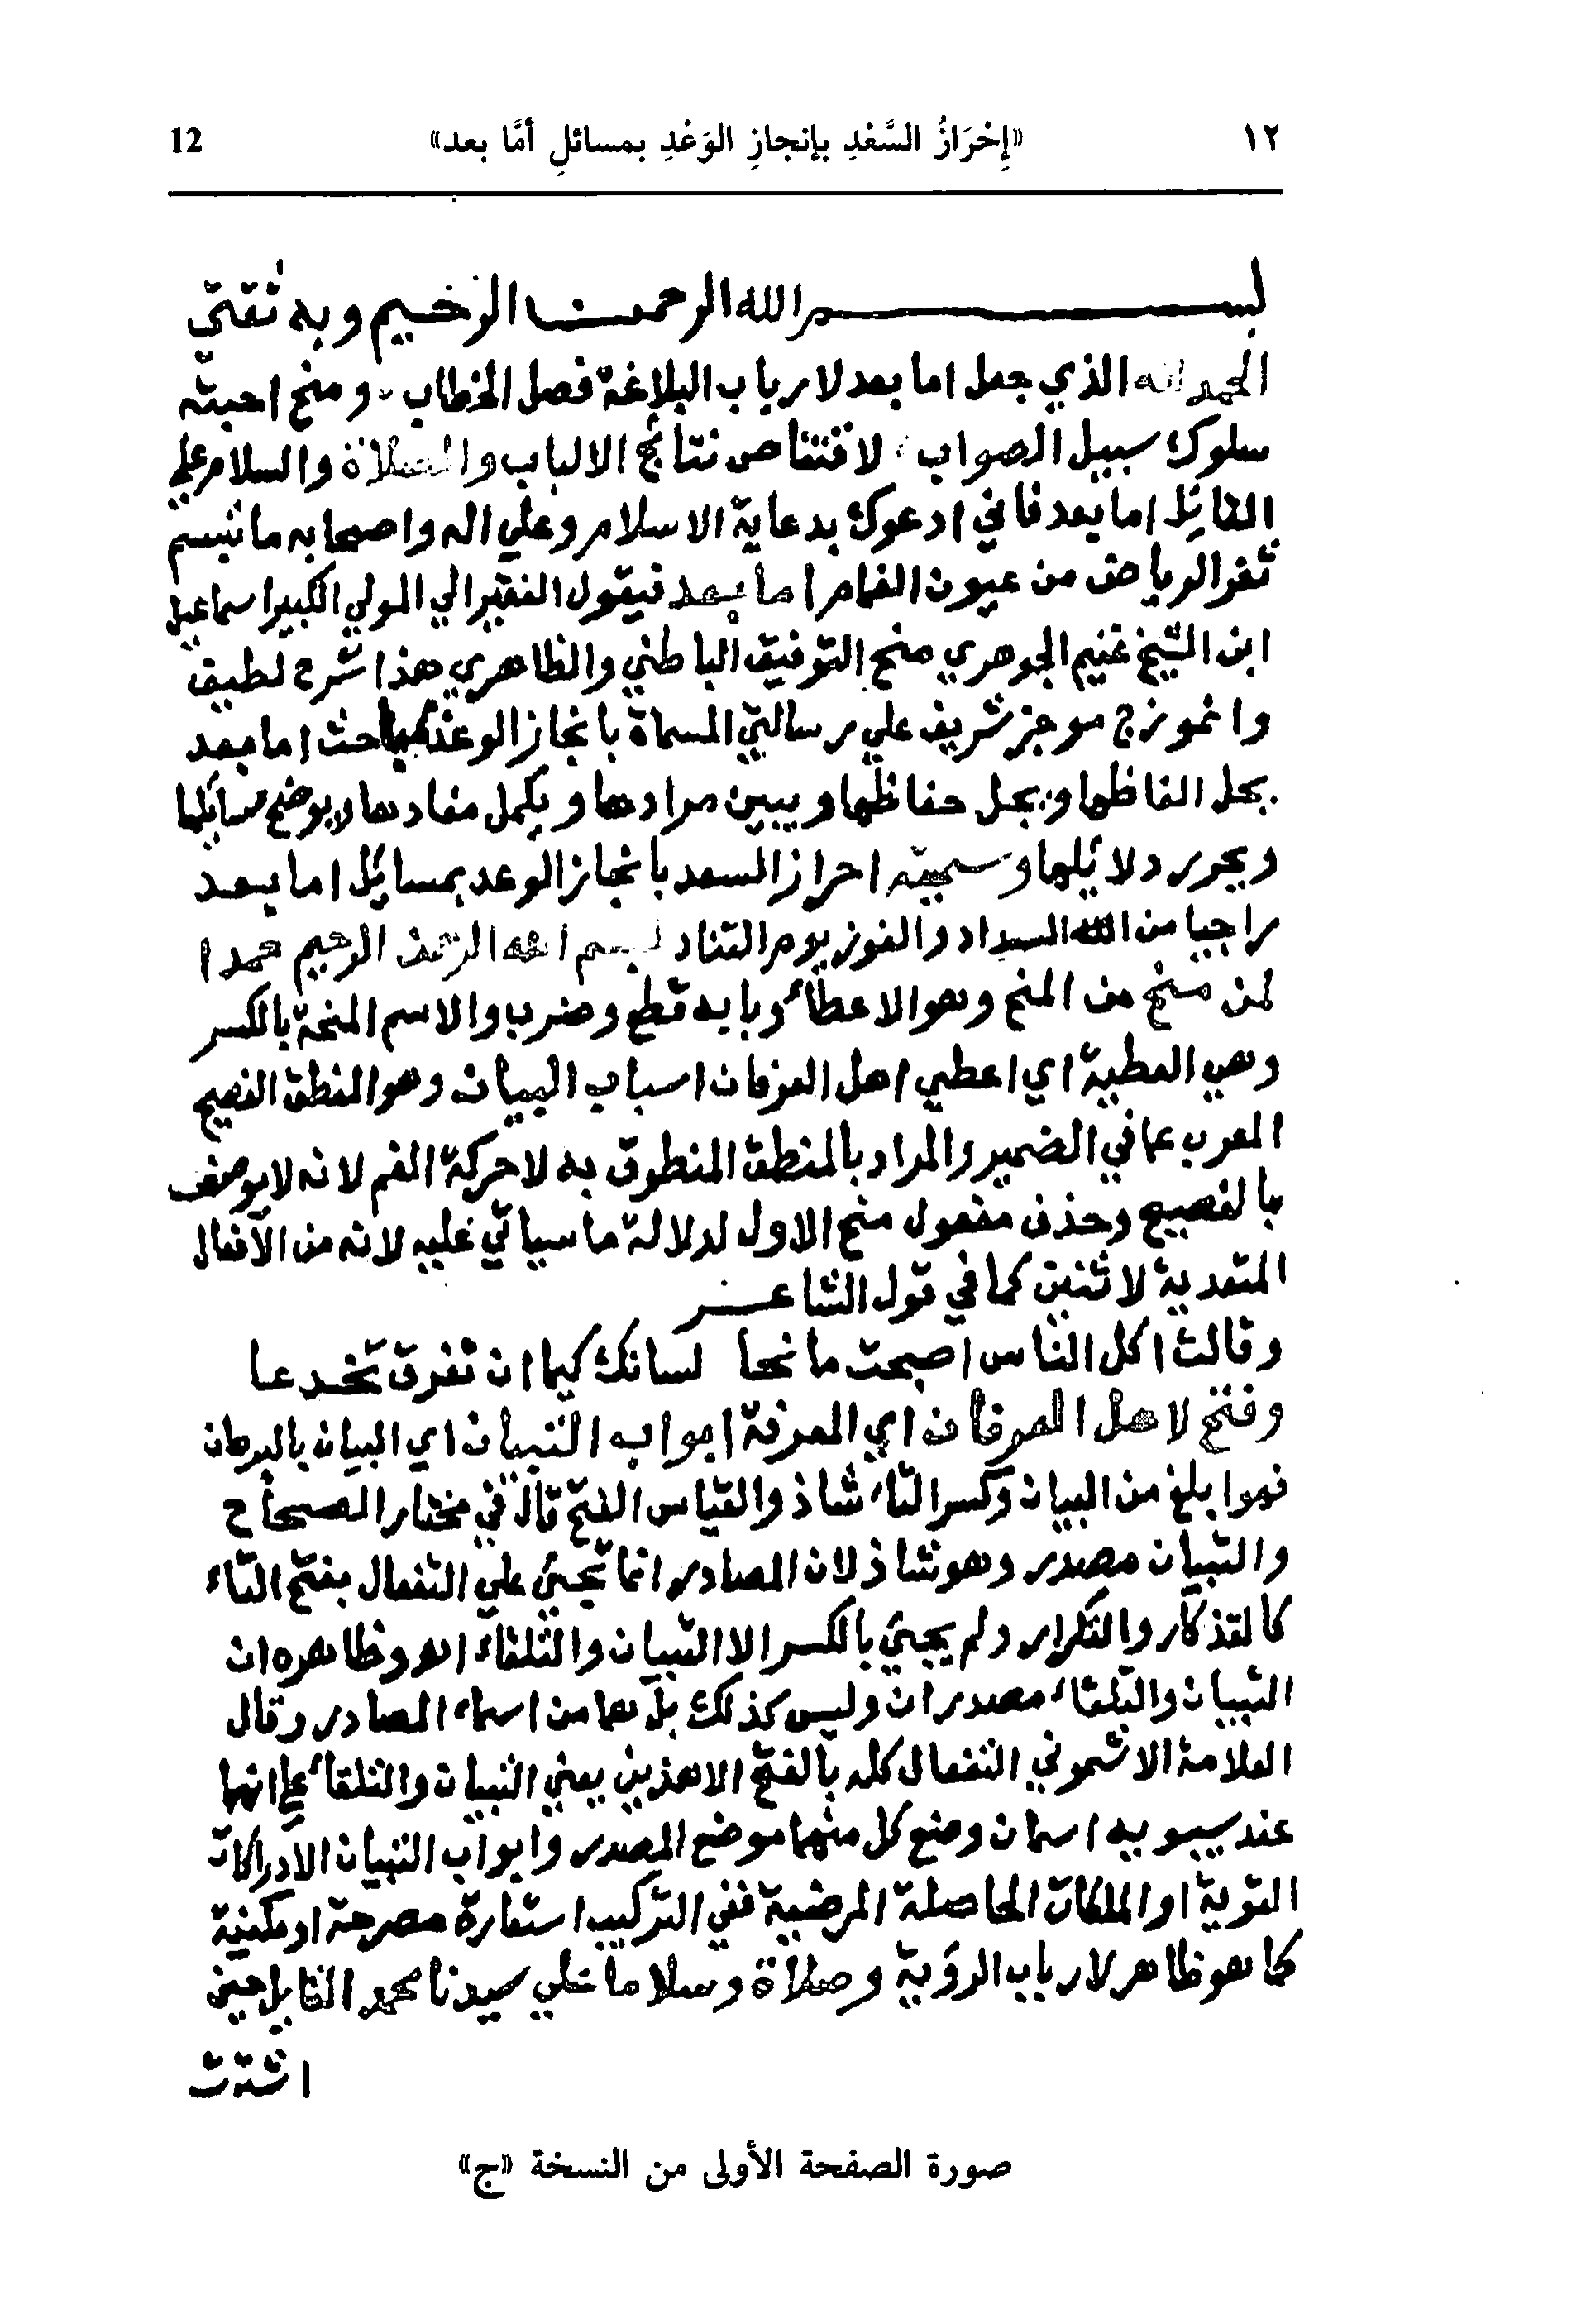 ١٢ «إِحْرَازُ السَّعْدِ بإنجازِ الوَعْدِ بمسائلِ أمَّا بعد» 12
بسم الله الرحمن الرحيم وبه ثقتي
الحمد لله الذي جعل اما بعد لارباب البلاغة فصل الخطاب ومنح احبته
سلوك سبيل الصواب لاقتناص نتائج الالباب والصلاة والسلام علي
القائل اما بعد فاني ادعوك بدعاية الاسلام وعلي اله واصحابه ما تبسم
ثغر الرياض من عيون الغمام اما بعد فيقول الفقير الي المولي الكبير اسماعيل
ابن الشيخ غنيم الجوهري منح التوفيق الباطني والظاهري هذا شرح لطيف
وانموزج موجز شريف علي رسالتي المسماة بانجاز الوعد بمباحث اما بعد
يحل الفاظها ويجل حفاظها ويبين مرادها ويكمل مفادها ويوضح مسائلها
ويحرر دلائلها وسميته احراز السعد بانجاز الوعد بمسائل اما بعد
راجيا من الله السداد والفوز يوم التناد بسم الله الرحمن الرحيم حمدا
لمن منح من المنح وهو الاعطاء وبابه قطع وضرب والاسم المنحة بالكسر
وهي العطية اي اعطي اهل العرفان اسباب البيان وهو المنطق الفصيح
المعرب عما في الضمير والمراد بالمنطق المنطوق به لا حركة الفم لانه لا يوصف
بالفصيح وحذف مفعول منح الاول لدلالة ما سياتي عليه لانه من الافعال
المتعدية لاثنين كما في قول الشاعر
وقالت اكل الناس اصبحت مانحا لسانك كيما ان تغرق تخدعا
وفتح لاهل العرفان اي المعرفة ابواب التبيان اي البيان بالبرهان
فهو ابلغ من البيان وكسر التاء شاذ والقياس الفتح قال في مختار الصحاح
والتبيان مصدر وهو شاذ لان المصادر انما تجيئ علي التفعال بفتح التاء
كالتذكار والتكرار ولم يجيئ بالكسر الا التبيان والتلقاء اهـ وظاهره ان
التبيان والتلقاء مصدران وليس كذلك بل هما من اسماء المصادر وقال
العلامة الاشموني التفعال كله بالفتح الا هذين يعني التبيان والتلقاء علي انهما
عند سيبويه اسمان وضع كل منهما موضع المصدر وابواب التبيان الادراكات
القوية او الملكات الحاصلة المرضية ففي التركيب استعارة مصرحة او مكنية
كما هو ظاهر لارباب الروية وصلاة وسلاما علي سيدنا محمد القايل حين
اشتدت
صورة الصفحة الأولى من النسخة «ج»